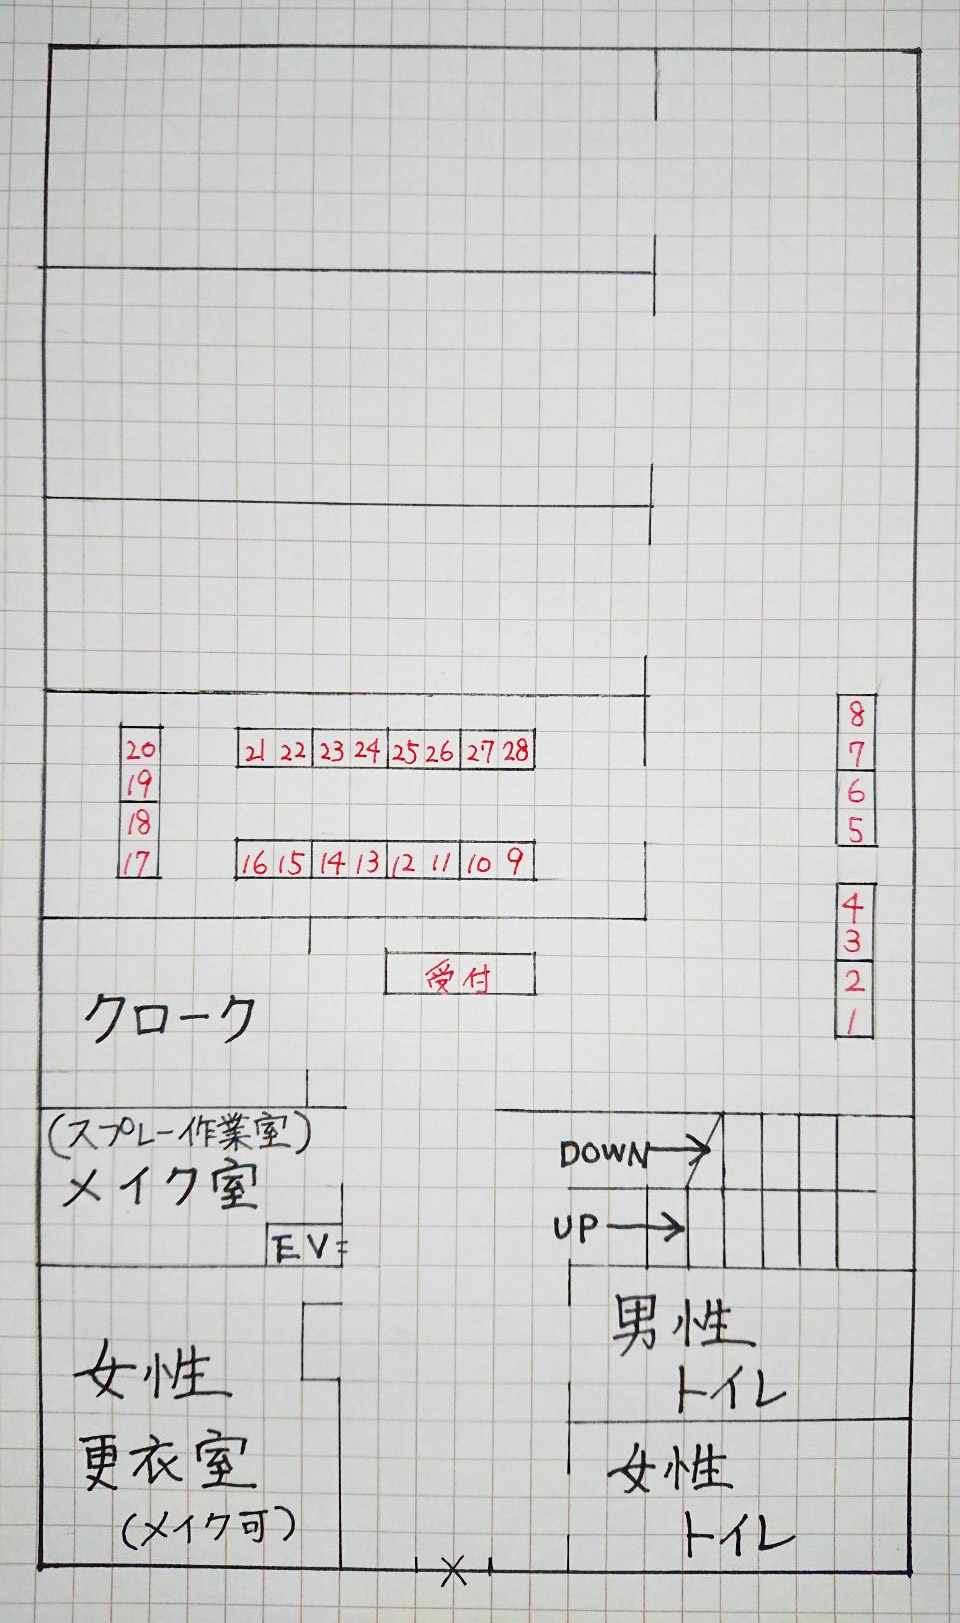 20
19
18
17
21 22 23 24 25 26 27 28
16 15 14 13 12 11 10 9
8
7
6
5
4
3
2
1
受付
クローク
(スプレー作業室)
メイク室
EV
DOWN
UP
女性
更衣室
(メイク可)
男性
トイレ
女性
トイレ